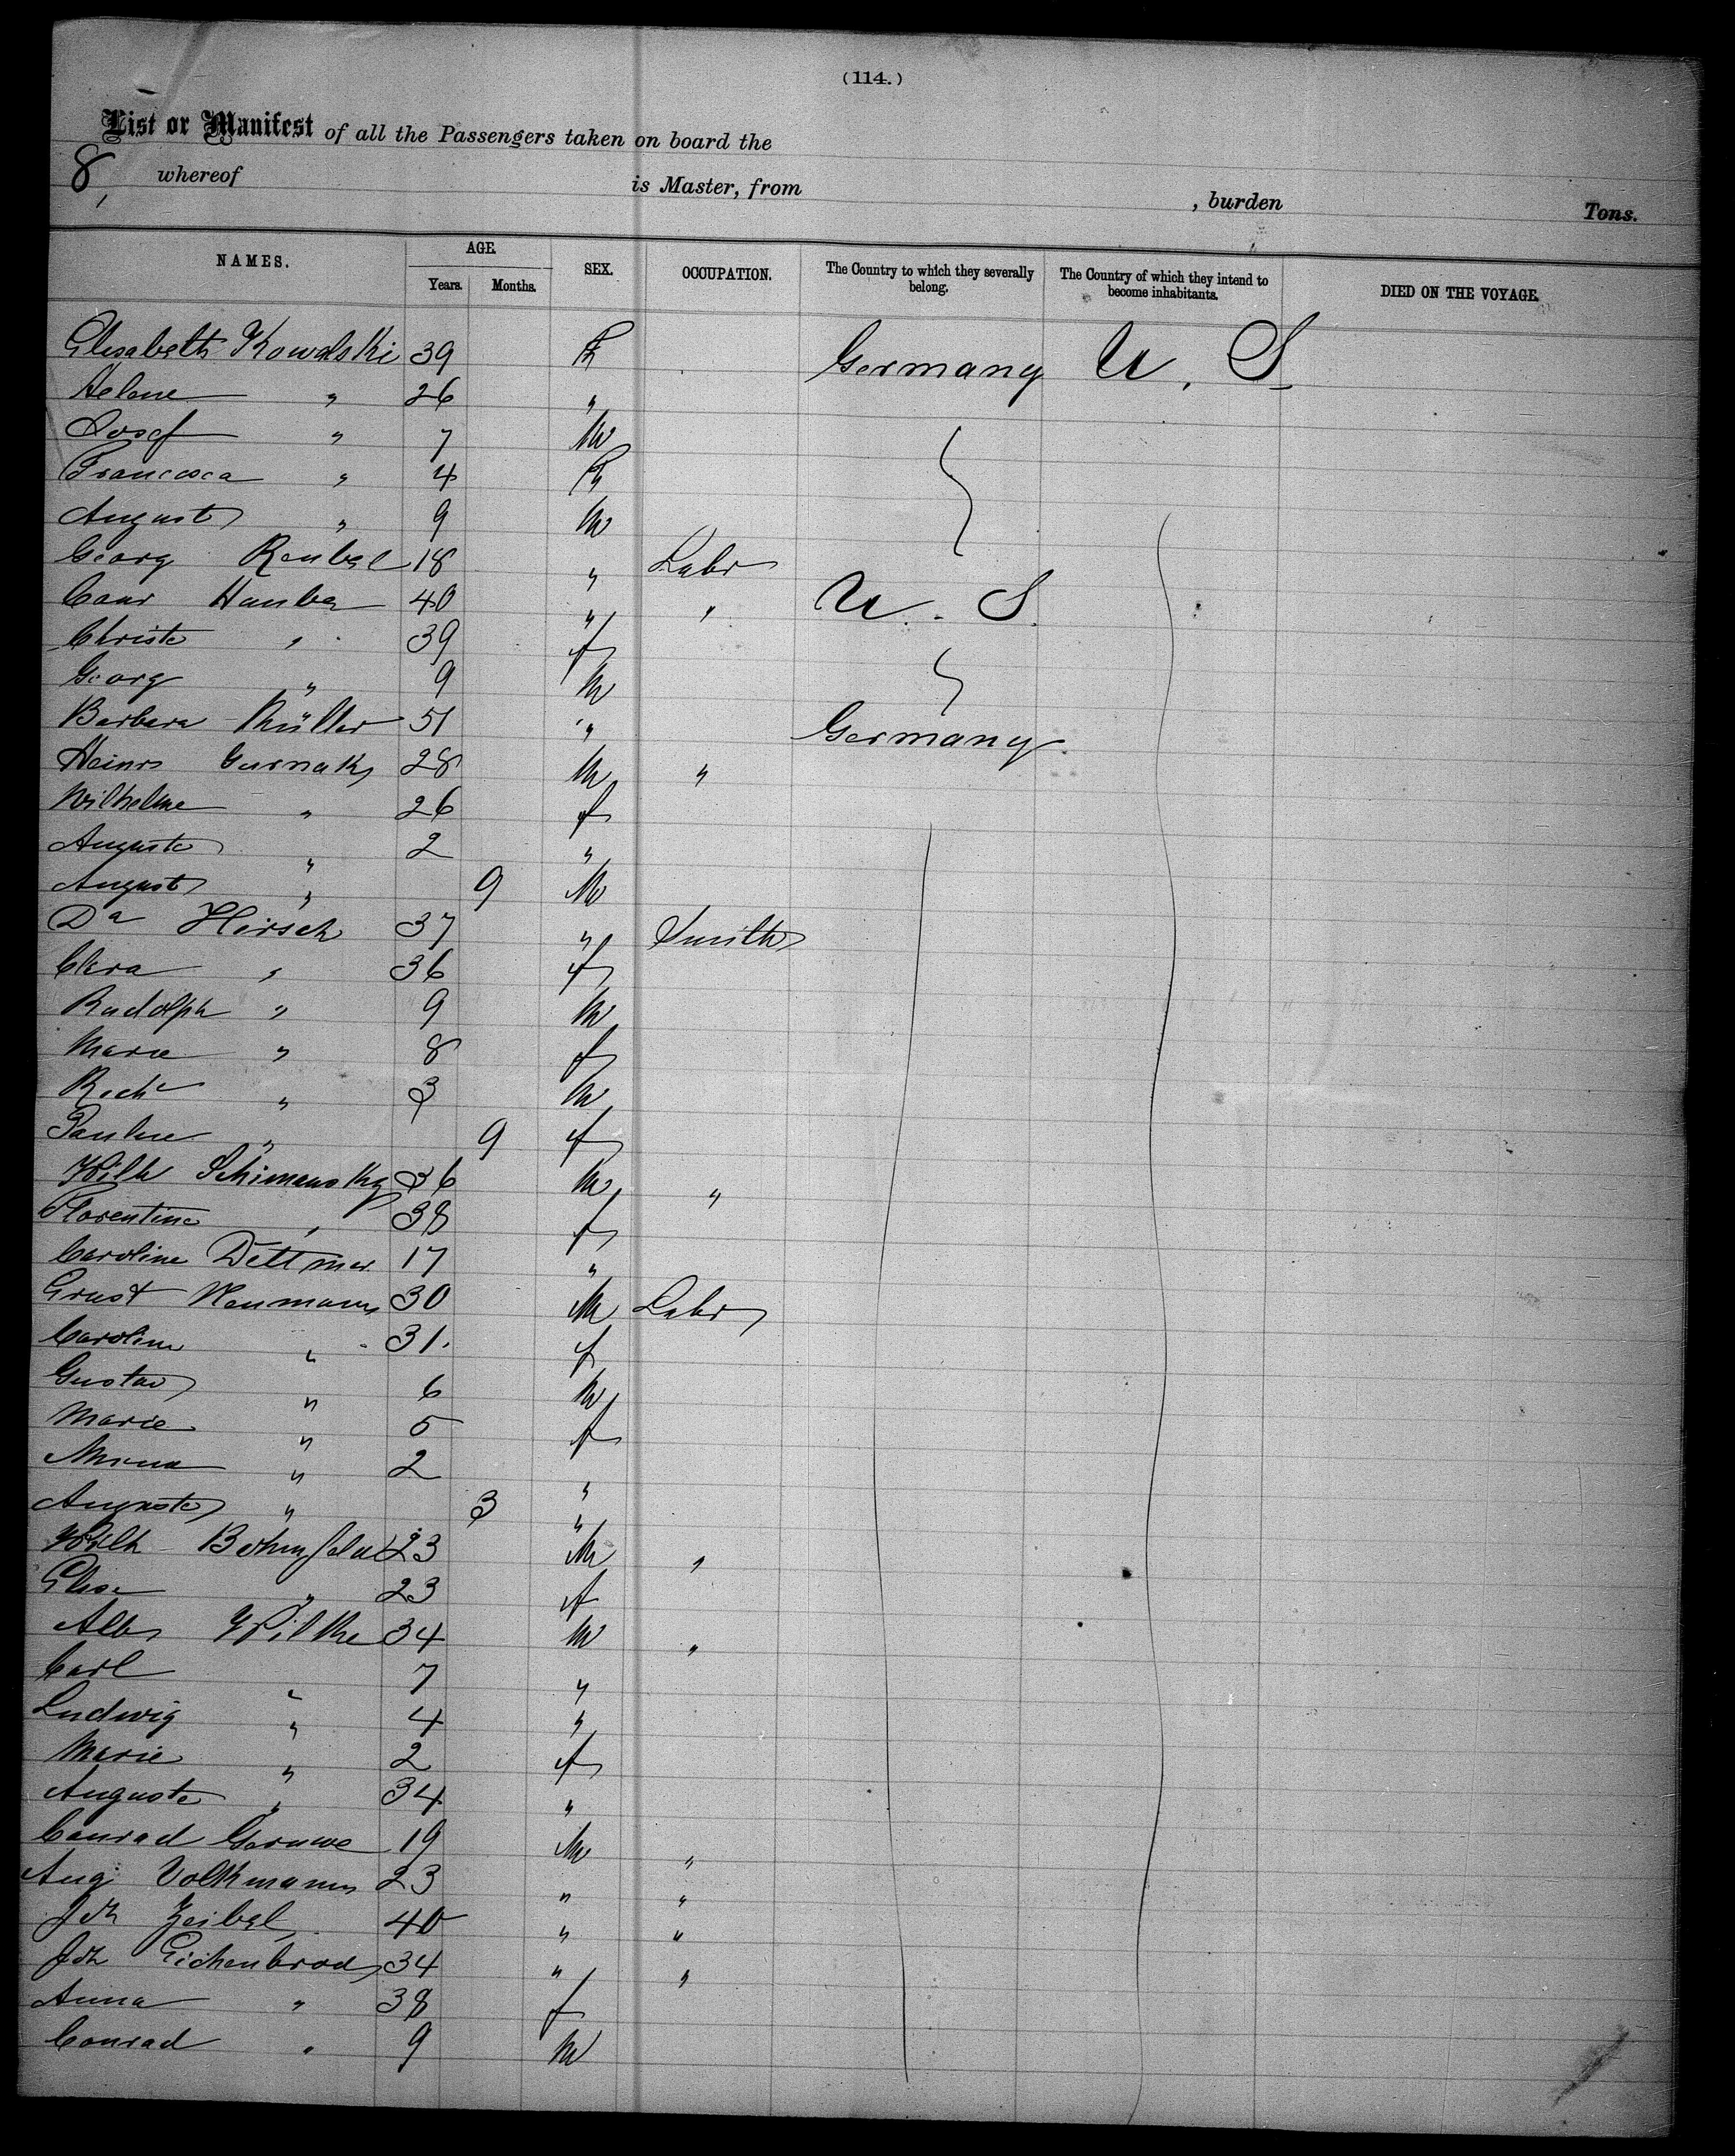 (114.)
List or Manifest of all the Passengers taken on board the
8, whereof is Master, from , burden Tons.
NAMES. AGE. SEX. OCCUPATION. The Country to which they severally belong. The Country of which they intend to become inhabitants. DIED ON THE VOYAGE.
Years. Months.
Elisabeth Kowalski 39 F Germany U. S.
Helene " 26 "
Josef " 7 M
Francisca " 4 F
August " 9 M
Georg Reubel 18 " Labr
Conr Hauber 40 " " U. S.
Christe " 39 f
Georg " 9 M
Barbara Müller 51 " Germany
Heinr 28 M "
Wilhelme " 26 f
Auguste " 2 "
August " 9 M
Da Hirsch 37 " Smith
Clara " 36 f
Rudolph " 9 M
Marie " 8 f
Rich " 3 M
Pauline " 9 f
Wilh Schimansky 36 M "
Florentine " 38 f
Caroline Dettmer 17 "
Ernst Neumann 30 M Labr
Caroline " 31. f
Gustav " 6 M
Marie " 5 f
Minna " 2 "
Auguste " 3 "
Wilh 23 M "
Elise " 23 f
Alb Wilke 34 M "
Carl " 7 "
Ludwig " 4 "
Marie " 2 f
Auguste " 34 "
Conrad 19 M "
Aug Volkmann 23 " "
Joh Zeibel 40 " "
Joh Eichenbrod 34 " "
Anna " 38 f
Conrad " 9 M